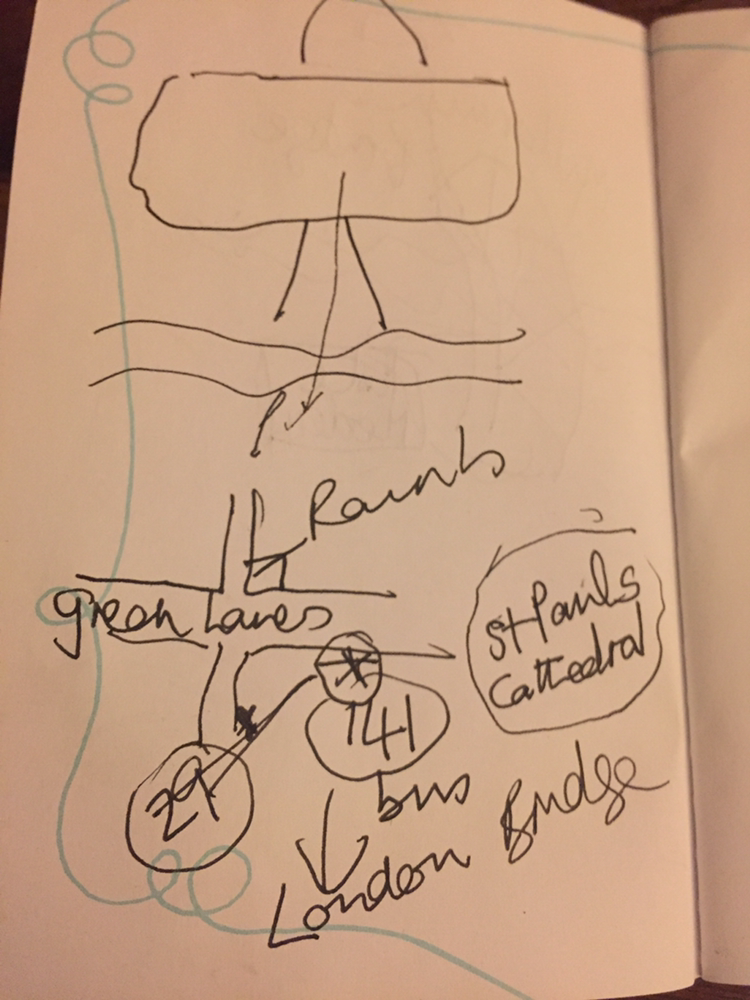 Green Lanes
St Pauls
Cathedral
29
141
bus
London Bridge